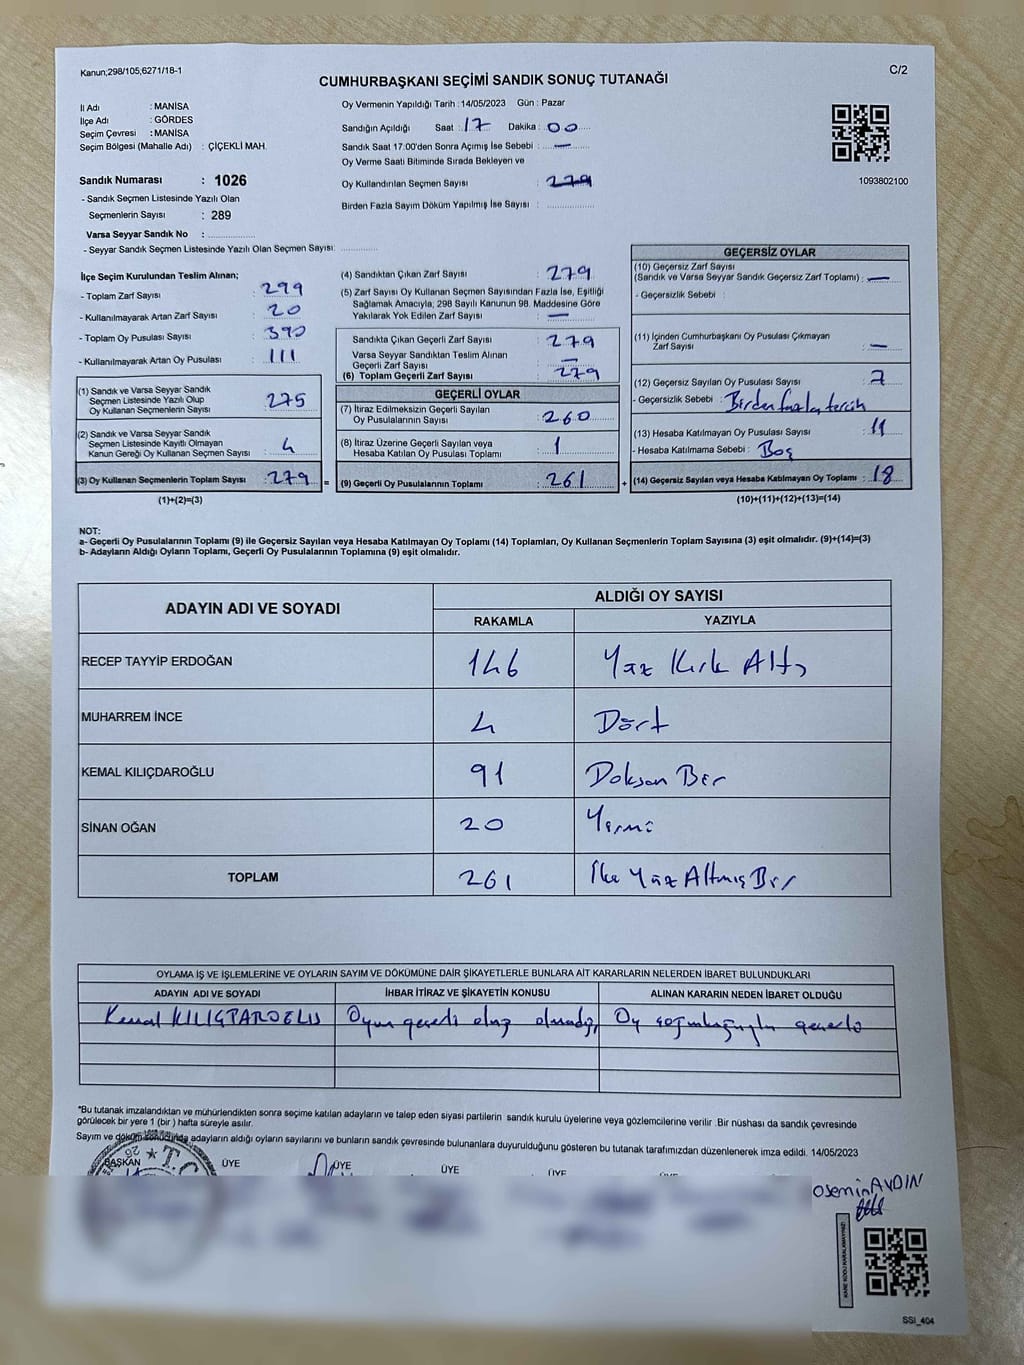 Kanun;298/105;6271/18-1
C/2
CUMHURBAŞKANI SEÇİMİ SANDIK SONUÇ TUTANAĞI
İl Adı : MANİSA
İlçe Adı : GÖRDES
Seçim Çevresi : MANİSA
Seçim Bölgesi (Mahalle Adı) : ÇİÇEKLİ MAH.
Sandık Numarası : 1026
- Sandık Seçmen Listesinde Yazılı Olan
Seçmenlerin Sayısı : 289
Varsa Seyyar Sandık No :
- Seyyar Sandık Seçmen Listesinde Yazılı Olan Seçmen Sayısı:
Oy Vermenin Yapıldığı Tarih : 14/05/2023 Gün : Pazar
Sandığın Açıldığı Saat : 17 Dakika : 00
Sandık Saat 17:00'den Sonra Açımış İse Sebebi : —
Oy Verme Saati Bitiminde Sırada Bekleyen ve
Oy Kullandırılan Seçmen Sayısı : 279
Birden Fazla Sayım Döküm Yapılmış İse Sayısı :
1093802100
İlçe Seçim Kurulundan Teslim Alınan;
- Toplam Zarf Sayısı : 299
- Kullanılmayarak Artan Zarf Sayısı : 20
- Toplam Oy Pusulası Sayısı : 390
- Kullanılmayarak Artan Oy Pusulası : 111
(1) Sandık ve Varsa Seyyar Sandık
Seçmen Listesinde Yazılı Olup
Oy Kullanan Seçmenlerin Sayısı : 275
(2) Sandık ve Varsa Seyyar Sandık
Seçmen Listesinde Kayıtlı Olmayan
Kanun Gereği Oy Kullanan Seçmen Sayısı : 4
(3) Oy Kullanan Seçmenlerin Toplam Sayısı : 279
(1)+(2)=(3)
(4) Sandıktan Çıkan Zarf Sayısı : 279
(5) Zarf Sayısı Oy Kullanan Seçmen Sayısından Fazla İse, Eşitliği
Sağlamak Amacıyla; 298 Sayılı Kanunun 98. Maddesine Göre
Yakılarak Yok Edilen Zarf Sayısı : —
Sandıkta Çıkan Geçerli Zarf Sayısı : 279
Varsa Seyyar Sandıktan Teslim Alınan
Geçerli Zarf Sayısı : —
(6) Toplam Geçerli Zarf Sayısı : 279
GEÇERLİ OYLAR
(7) İtiraz Edilmeksizin Geçerli Sayılan
Oy Pusulasının Sayısı : 260
(8) İtiraz Üzerine Geçerli Sayılan veya
Hesaba Katılan Oy Pusulası Toplamı : 1
= (9) Geçerli Oy Pusulalarının Toplamı : 261
GEÇERSİZ OYLAR
(10) Geçersiz Zarf Sayısı
(Sandık ve Varsa Seyyar Sandık Geçersiz Zarf Toplamı) : —
- Geçersizlik Sebebi :
(11) İçinden Cumhurbaşkanı Oy Pusulası Çıkmayan
Zarf Sayısı : —
(12) Geçersiz Sayılan Oy Pusulası Sayısı : 7
- Geçersizlik Sebebi : Birden fazla tercih
(13) Hesaba Katılmayan Oy Pusulası Sayısı : 11
- Hesaba Katılmama Sebebi : Boş
+ (14) Geçersiz Sayılan veya Hesaba Katılmayan Oy Toplamı : 18
(10)+(11)+(12)+(13)=(14)
NOT:
a- Geçerli Oy Pusulalarının Toplamı (9) ile Geçersiz Sayılan veya Hesaba Katılmayan Oy Toplamı (14) Toplamları, Oy Kullanan Seçmenlerin Toplam Sayısına (3) eşit olmalıdır. (9)+(14)=(3)
b- Adayların Aldığı Oyların Toplamı, Geçerli Oy Pusulalarının Toplamına (9) eşit olmalıdır.
ADAYIN ADI VE SOYADI
ALDIĞI OY SAYISI
RAKAMLA YAZIYLA
RECEP TAYYİP ERDOĞAN 146 Yüz Kırk Altı
MUHARREM İNCE 4 Dört
KEMAL KILIÇDAROĞLU 91 Doksan Bir
SİNAN OĞAN 20 Yirmi
TOPLAM 261 İki Yüz Altmış Bir
OYLAMA İŞ VE İŞLEMLERİNE VE OYLARIN SAYIM VE DÖKÜMÜNE DAİR ŞİKAYETLERLE BUNLARA AİT KARARLARIN NELERDEN İBARET BULUNDUKLARI
ADAYIN ADI VE SOYADI İHBAR İTİRAZ VE ŞİKAYETİN KONUSU ALINAN KARARIN NEDEN İBARET OLDUĞU
Kemal KILIÇDAROĞLU Oyun geçerli olup olmadığı, Oy çoğunluğuyla geçerli
*Bu tutanak imzalandıktan ve mühürlendikten sonra seçime katılan adayların ve talep eden siyasi partilerin sandık kurulu üyelerine veya gözlemcilerine verilir .Bir nüshası da sandık çevresinde
görülecek bir yere 1 (bir ) hafta süreyle asılır.
Sayım ve döküm sonucunda adayların aldığı oyların sayılarını ve bunların sandık çevresinde bulunanlara duyurulduğunu gösteren bu tutanak tarafımızdan düzenlenerek imza edildi. 14/05/2023
BAŞKAN ÜYE ÜYE ÜYE ÜYE
T.C.
AYDIN
SSI_404